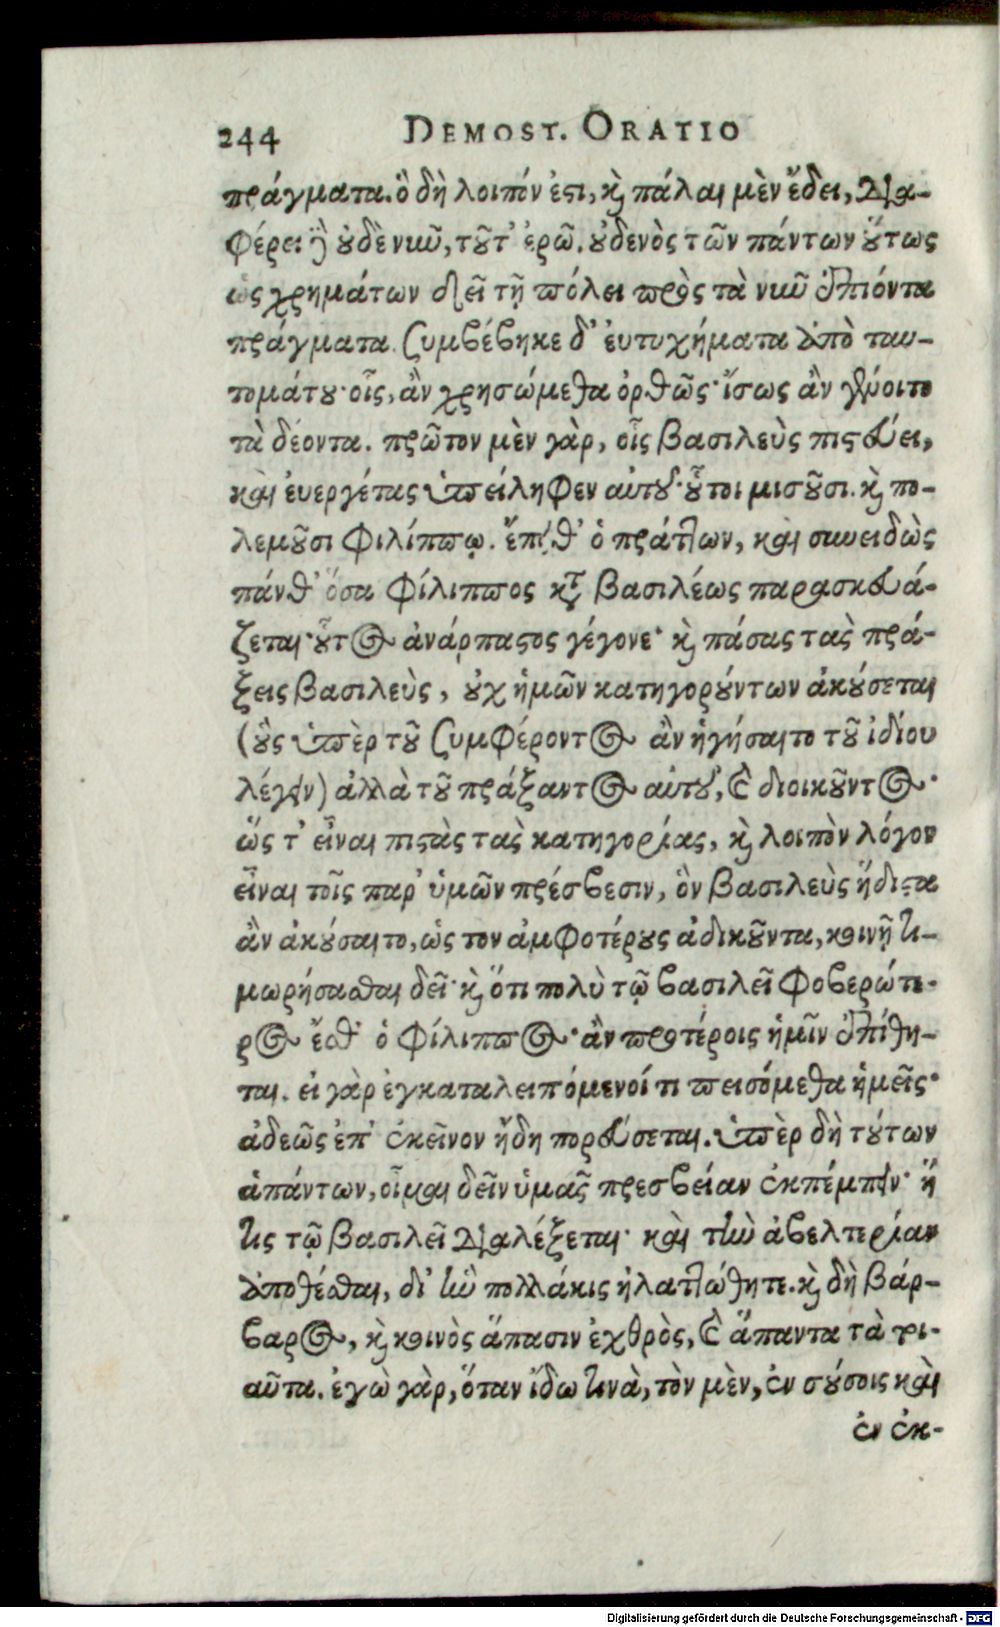 244 DEMOST. ORATIO
πράγματα. ὃ δὴ λοιπόν ἐστι, καὶ πάλαι μὲν ἔδει, δια-
φέρει δὲ οὐδὲ νῦν, τοῦτ᾽ ἐρῶ. οὐδενὸς τῶν πάντων οὕτως
ὡς χρημάτων δεῖ τῇ πόλει πρὸς τὰ νῦν ἐπιόντα
πράγματα. συμβέβηκε δ᾽ εὐτυχήματα ἀπὸ ταυ-
τομάτου· οἷς, ἂν χρησώμεθα ὀρθῶς· ἴσως ἂν γένοιτο
τὰ δέοντα. πρῶτον μὲν γὰρ, οἷς βασιλεὺς πιστεύει,
καὶ ἐυεργέτας ὑπείληφεν αὐτοῦ· οὗτοι μισοῦσι. καὶ πο-
λεμοῦσι Φιλίππῳ. ἔπειθ᾽ ὁ πράττων, καὶ συνειδὼς
πάνθ᾽ ὅσα Φίλιππος κατὰ βασιλέως παρασκευά-
ζεται· οὗτος ἀνάρπαστος γέγονε· καὶ πάσας τὰς πρά-
ξεις βασιλεὺς, οὐχ ἡμῶν κατηγορούντων ἀκούσεται
(οὓς ὑπὲρ τοῦ συμφέροντος ἂν ἡγήσαιτο τοῦ ἰδίου
λέγειν) ἀλλὰ τοῦ πράξαντος αὐτοῦ, καὶ διοικοῦντος·
ὥς τ᾽ εἶναι πιστὰς τὰς κατηγορίας, καὶ λοιπὸν λόγον
εἶναι τοῖς παρ᾽ ὑμῶν πρέσβεσιν, ὃν βασιλεὺς ἥδιστα
ἂν ἀκούσαιτο, ὡς τὸν ἀμφοτέρους ἀδικοῦντα, κοινῇ τι-
μωρήσασθαι δεῖ· καὶ ὅτι πολὺ τῷ βασιλεῖ φοβερώτε-
ρος ἔσθ᾽ ὁ Φίλιππος· ἂν προτέροις ἡμῖν ἐπίθη-
ται. εἰ γὰρ ἐγκαταλειπόμενοί τι πεισόμεθα ἡμεῖς·
ἀδεῶς ἐπ᾽ ἐκεῖνον ἤδη πορεύσεται. ὑπὲρ δὴ τούτων
ἁπάντων, οἶμαι δεῖν ὑμᾶς πρεσβείαν ἐκπέμπειν· ἥ
τις τῷ βασιλεῖ διαλέξεται· καὶ τὴν ἀβελτερίαν
ἀποθέσθαι, δι᾽ ἣν πολλάκις ἠλαττώθητε. καὶ δὴ βάρ-
βαρος, καὶ κοινὸς ἅπασιν ἐχθρὸς, καὶ ἅπαντα τὰ τοι-
αῦτα. ἐγὼ γὰρ, ὅταν ἴδω τινὰ, τὸν μὲν, ἐν σούσοις καὶ
ἐν ἐκ-
Digitalisierung gefördert durch die Deutsche Forschungsgemeinschaft - DFG